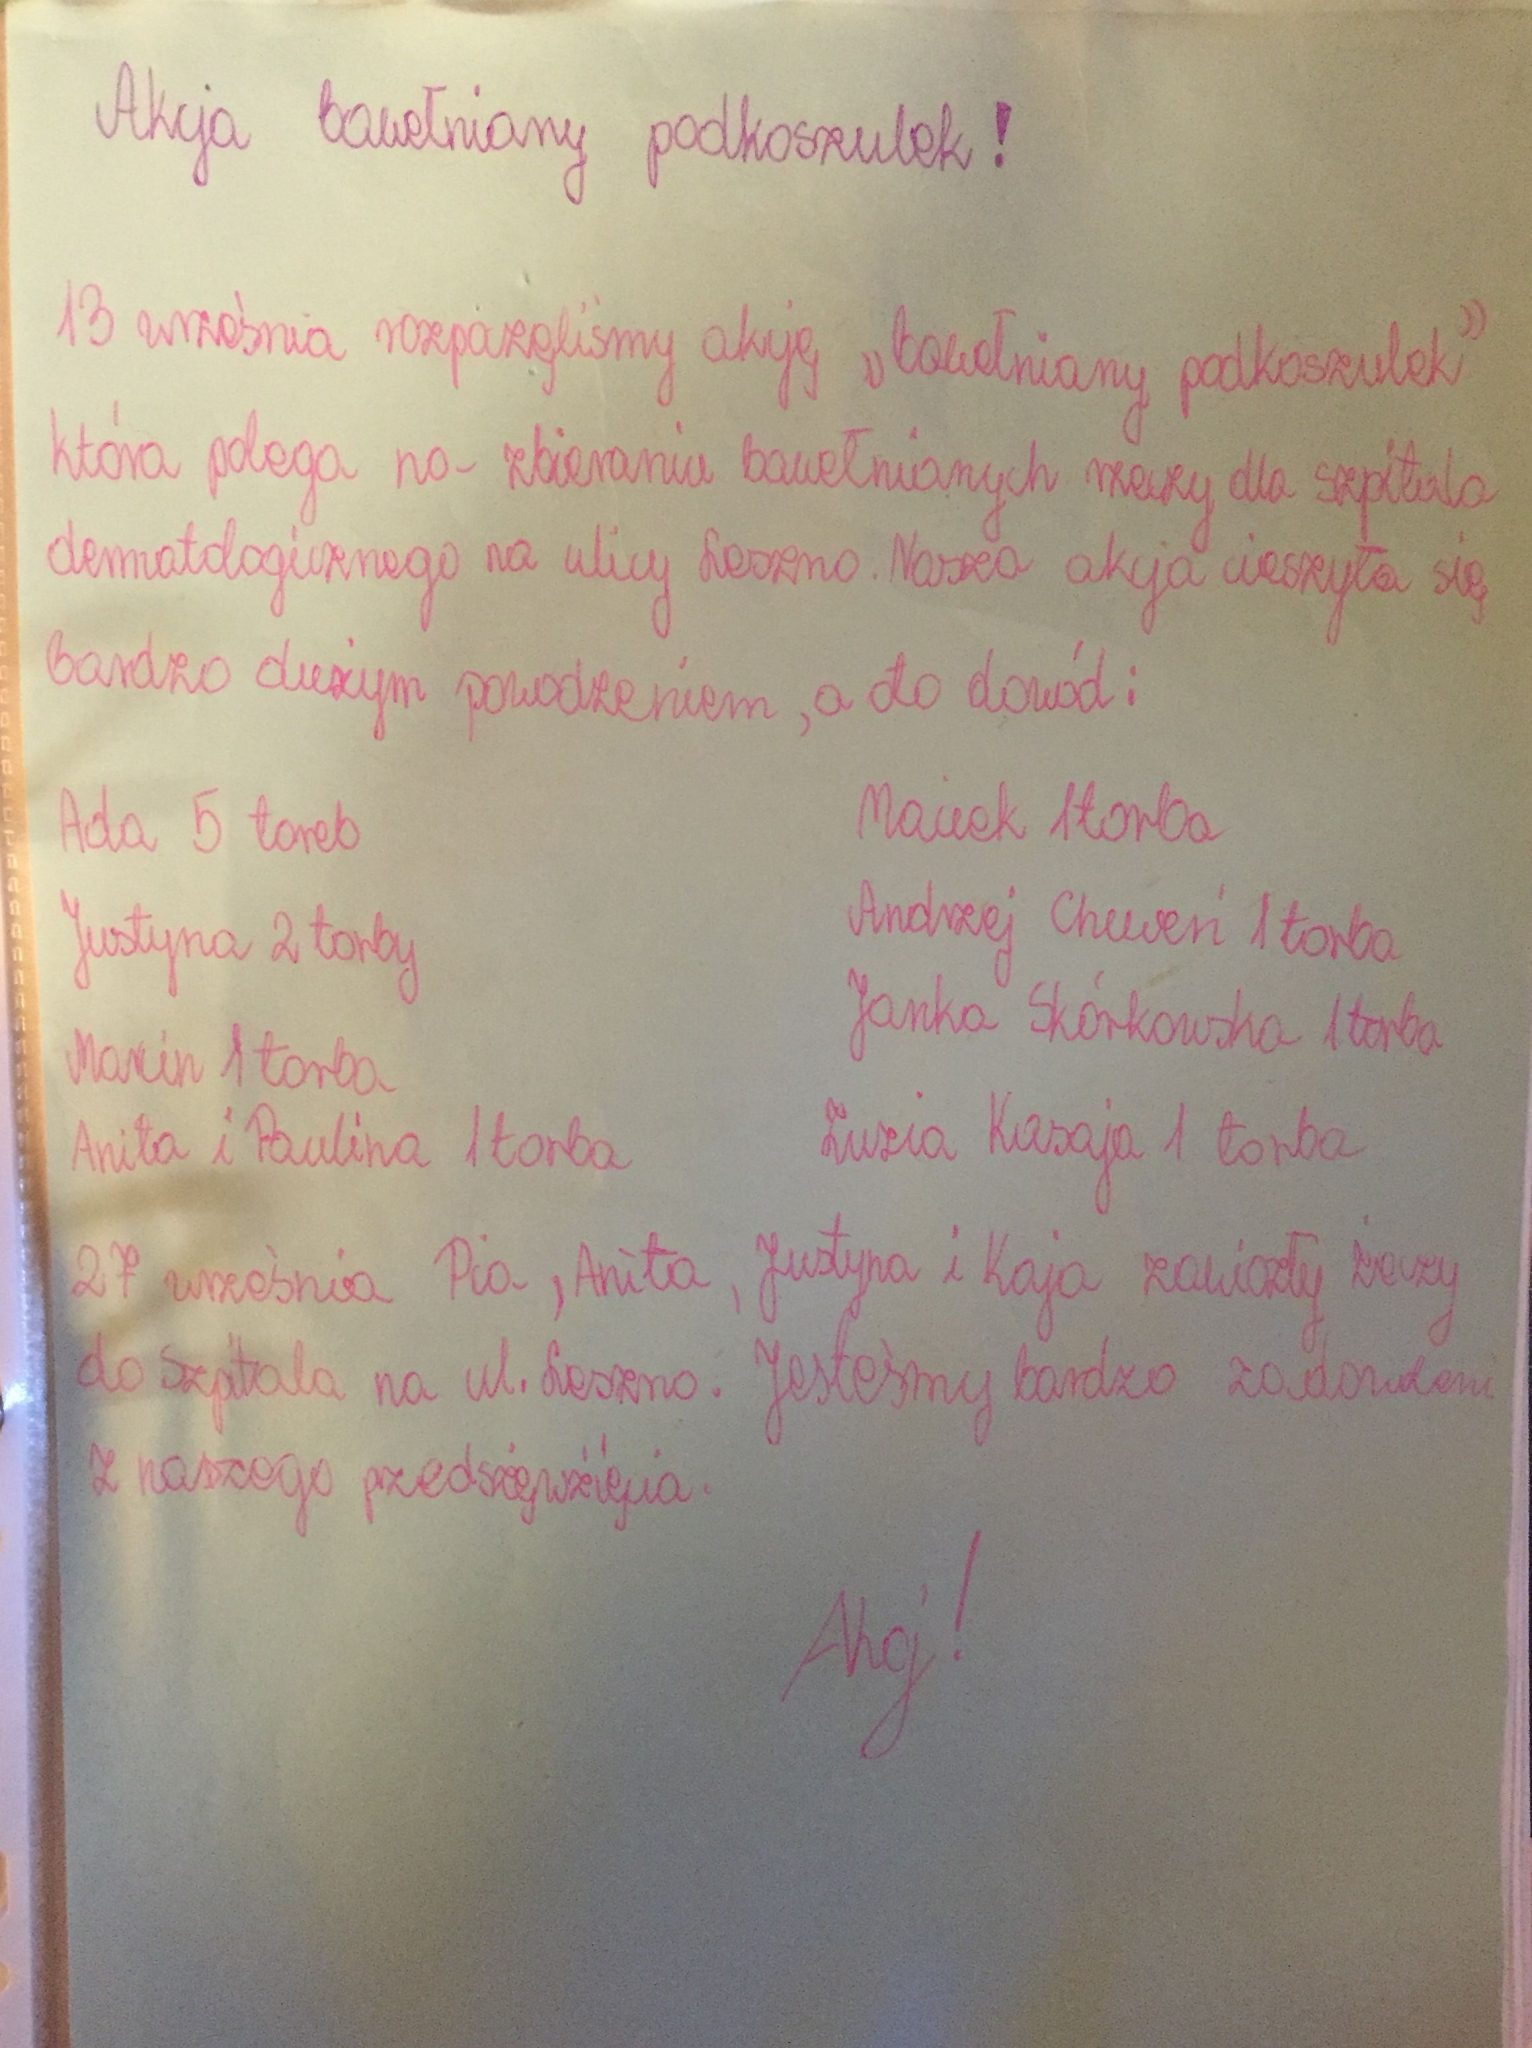 Akcja bawełniany podkoszulek!
13 września rozpaczęliśmy akcję „bawełniany podkoszulek”
która polega na- zbieraniu bawełnianych rzeczy dla szpitala
dermatologicznego na ulicy Leszno. Nasza akcja cieszyła się
bardzo dużym powodzeniem, a oto dowód:
Ada 5 toreb
Justyna 2 torby
Marcin 1 torba
Anita i Paulina 1 torba
Maciek 1 torba
Andrzej 1 torba
Janka Skórkowska 1 torba
Zuzia 1 torba
27 września Pia, Anita, Justyna i Kaja zawiozły żeczy
do szpitala na ul. Leszno. Jesteśmy bardzo zadowoleni
z naszego przedsięwzięcia.
Ahoj!